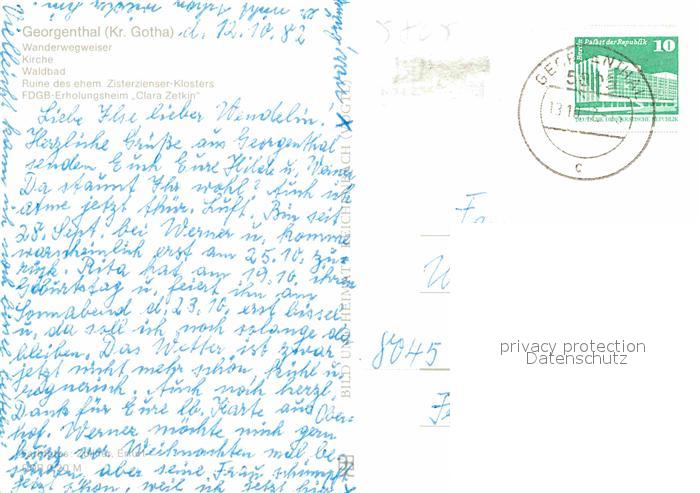 Georgenthal (Kr. Gotha) d. 12.10.82
Wanderwegweiser
Kirche
Waldbad
Ruine des ehem. Zisterzienser-Klosters
FDGB-Erholungsheim „Clara Zetkin"
Liebe Ilse lieber Wendelin.
Herzliche Grüße aus Georgenthal
senden Euch Eure Hilde u. Werner
Da staunt Ihr wohl? Auch ich
atme jetzt thür. Luft. Bin seit
28. Sept. bei Werner u. komme
warscheinlich erst am 25.10. zu-
rück. Rita hat am 19.10. ihren
Geburtstag u. feiert ihn am
Sonnabend d. 23.10. erst bissel
u. da soll ich noch solange da
bleiben. Das Wetter ist zwar
jetzt nicht mehr schön, kühl u.
regnerisch. Auch noch herzl.
Dank für Eure lb. Karte aus Ober-
hof. Werner möchte mich gern
Weihnachten mal be-
suchen aber seine Frau schimpft
jetzt schon, weil ich jetzt hier
BILD UND HEIMAT REICHENBACH
Berlin, Palast der Republik
10
GEORGENTHAL
c
8045
privacy protection
Datenschutz